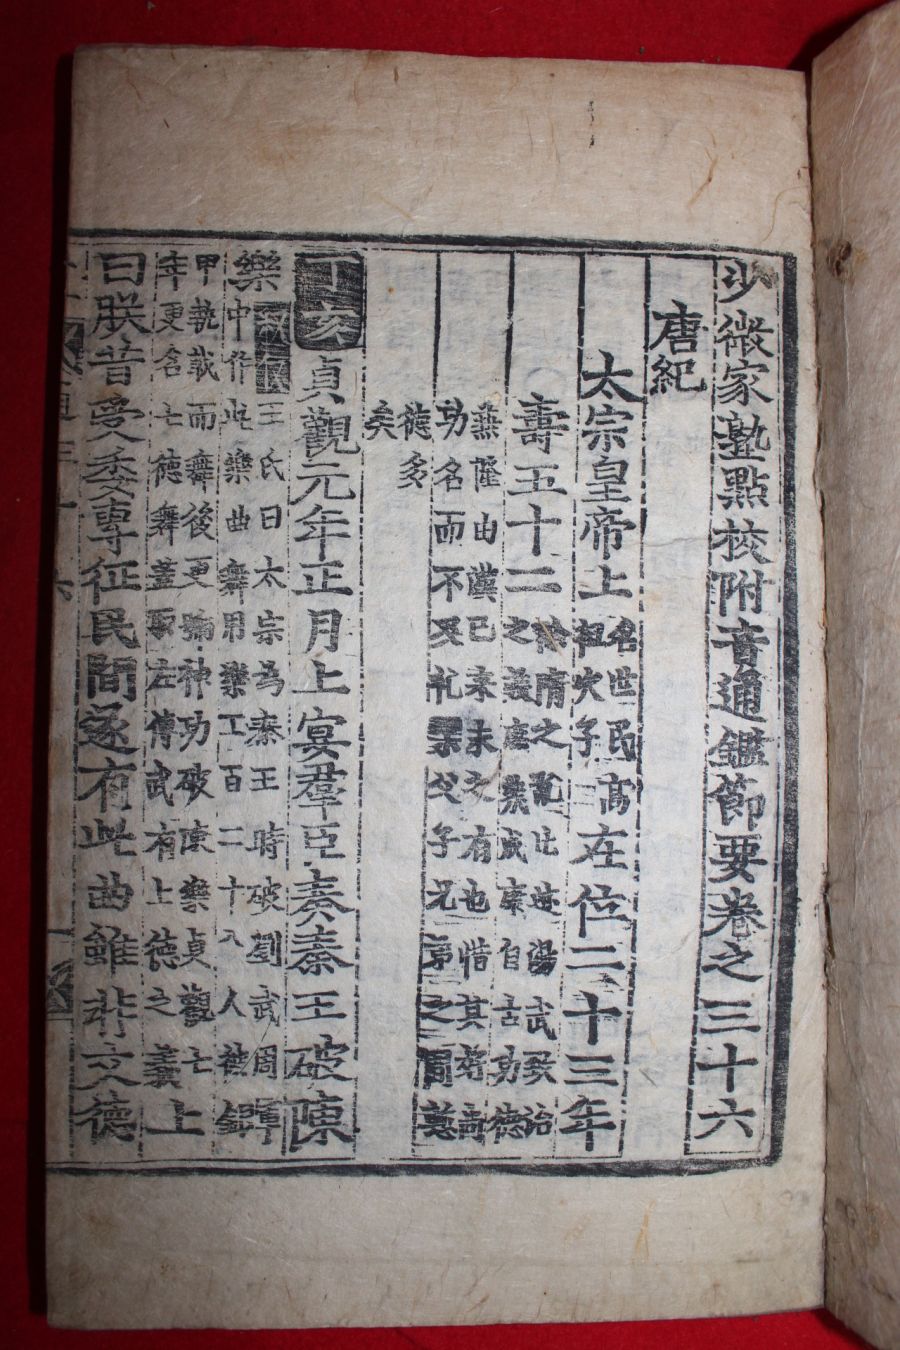 少微家塾點校附音通鑑節要卷之三十六
唐紀
太宗皇帝上名世民高祖次子在位二十三年
壽五十二除隋之亂比迹湯武致治之美庶幾成康自古功德
兼隆由漢已來未之有也惜其好尚功名而不及礼樂父子兄弟之間慙
德多矣
丁亥貞觀元年正月上宴羣臣奏秦王破陳
樂釋義王氏曰太宗為秦王時破劉武周軍中作此樂曲舞用樂工百二十八人被銀
甲執戟而舞後更號神功破陳樂貞觀七年更名七德舞蓋取左傳武有七德之義上
曰朕昔受委專征民間遂有此曲雖非文德